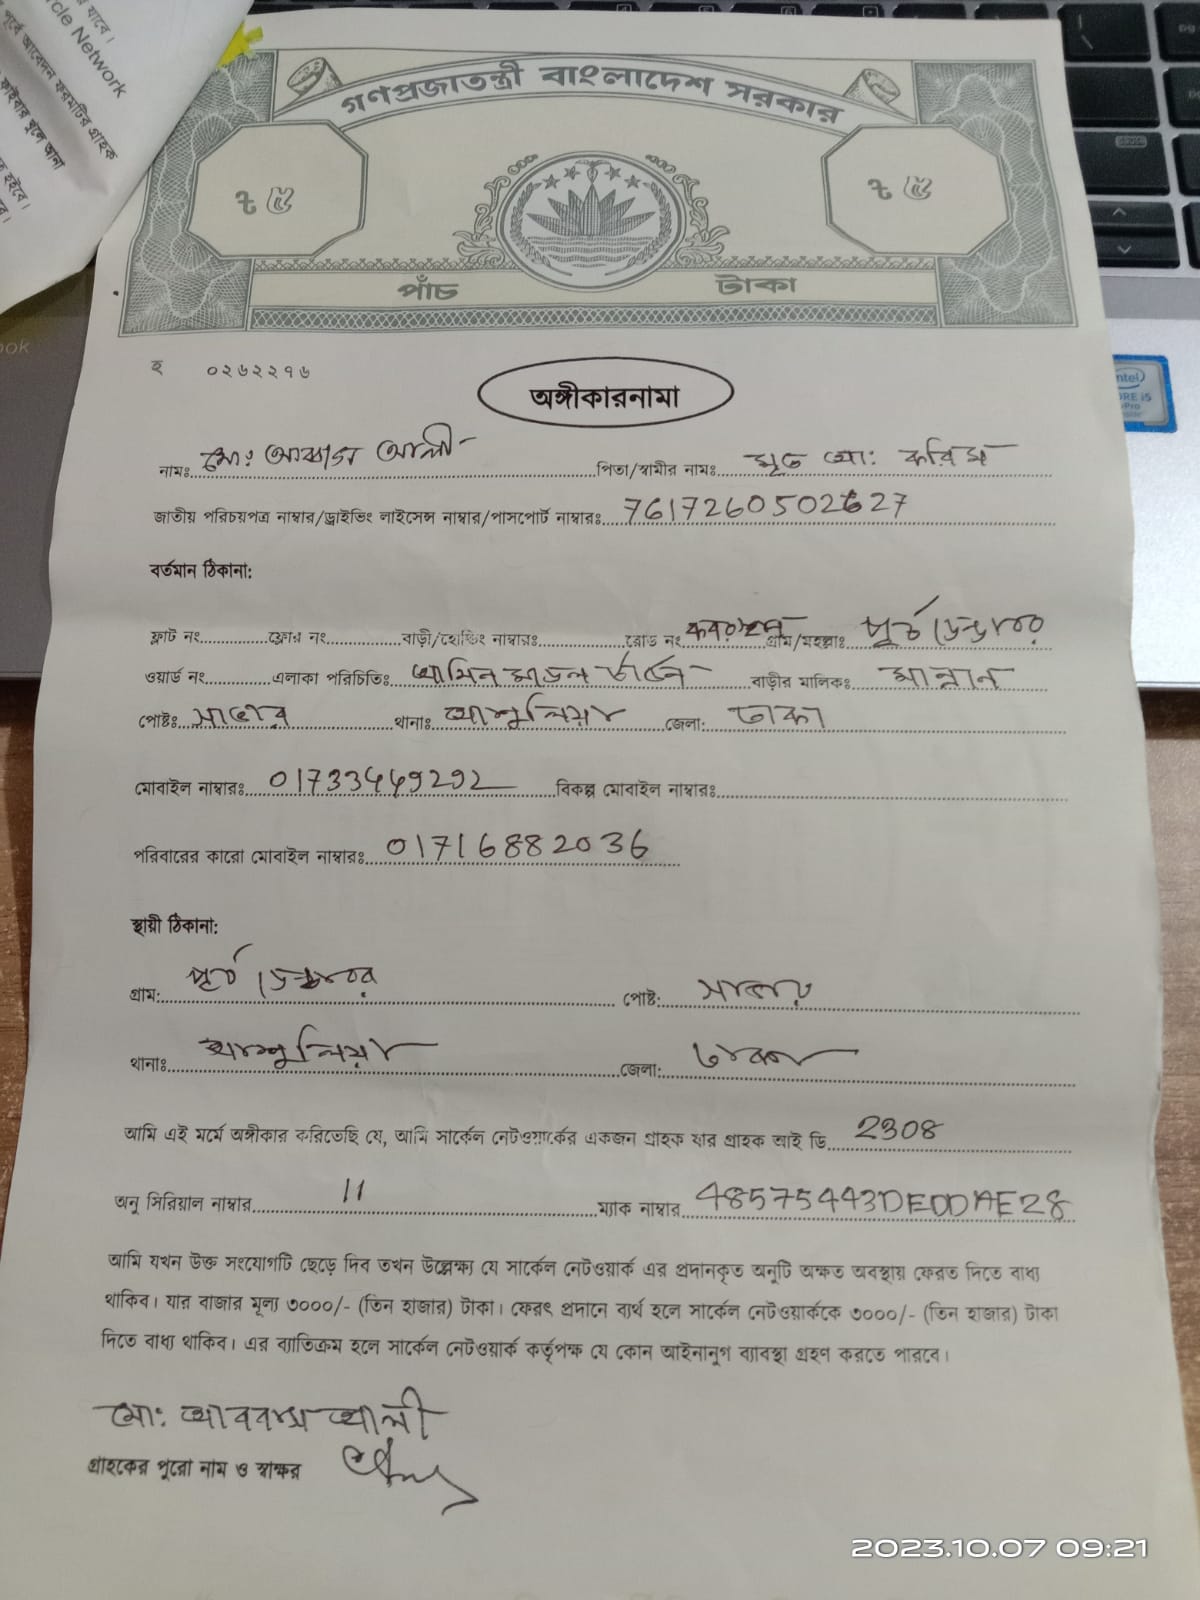 যাবে।
rcle Network
পূর্বে আবেদন ফরমটির গ্রাহক
ফাইবার খুলে আনা
হইবে।
ook
intel
CORE i5
vPro
inside
গণপ্রজাতন্ত্রী বাংলাদেশ সরকার
৳ ৫
৳ ৫
পাঁচ টাকা
হ ০২৬২২৭৬
অঙ্গীকারনামা
নামঃ মোঃ আব্বাস আলী পিতা/স্বামীর নামঃ মৃত মো: করিম
জাতীয় পরিচয়পত্র নাম্বার/ড্রাইভিং লাইসেন্স নাম্বার/পাসপোর্ট নাম্বারঃ 7617260502627
বর্তমান ঠিকানা:
ফ্লাট নং ফ্লোর নং বাড়ী/হোল্ডিং নাম্বারঃ রোড নং গ্রাম/মহল্লাঃ পূর্ব
ওয়ার্ড নং এলাকা পরিচিতিঃ আমিন বাড়ীর মালিকঃ মান্নান
পোষ্টঃ সাভার থানাঃ আশুলিয়া জেলা: ঢাকা
মোবাইল নাম্বারঃ 01733449292 বিকল্প মোবাইল নাম্বারঃ
পরিবারের কারো মোবাইল নাম্বারঃ 01716882036
স্থায়ী ঠিকানা:
গ্রাম: পূর্ব পোষ্ট: সাভার
থানাঃ আশুলিয়া জেলা: ঢাকা
আমি এই মর্মে অঙ্গীকার করিতেছি যে, আমি সার্কেল নেটওয়ার্কের একজন গ্রাহক যার গ্রাহক আই ডি 2308
অনু সিরিয়াল নাম্বার 11 ম্যাক নাম্বার 48575443DEDDAE28
আমি যখন উক্ত সংযোগটি ছেড়ে দিব তখন উল্লেক্ষ্য যে সার্কেল নেটওয়ার্ক এর প্রদানকৃত অনুটি অক্ষত অবস্থায় ফেরত দিতে বাধ্য
থাকিব। যার বাজার মূল্য ৩০০০/- (তিন হাজার) টাকা। ফেরৎ প্রদানে ব্যর্থ হলে সার্কেল নেটওয়ার্ককে ৩০০০/- (তিন হাজার) টাকা
দিতে বাধ্য থাকিব। এর ব্যাতিক্রম হলে সার্কেল নেটওয়ার্ক কর্তৃপক্ষ যে কোন আইনানুগ ব্যাবস্থা গ্রহণ করতে পারবে।
মো: আববাস আলী
গ্রাহকের পুরো নাম ও স্বাক্ষর
2023.10.07 09:21